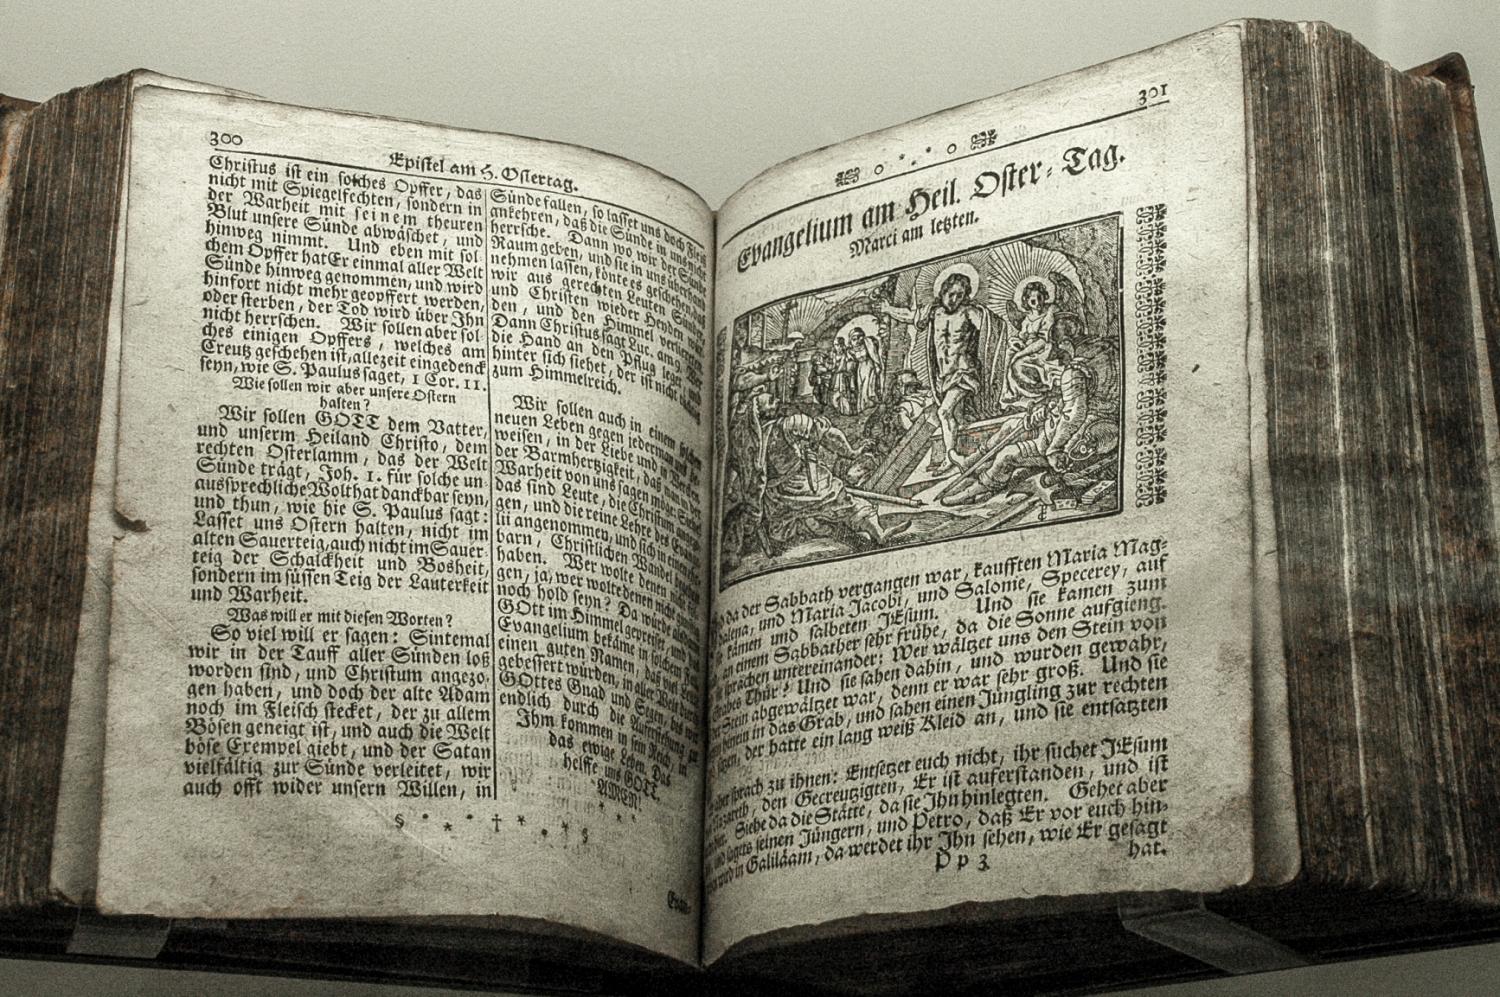 300
Epistel am H. Ostertag.
Christus ist ein solches Opffer, das
nicht mit Spiegelfechten, sondern in
der Warheit mit seinem theuren
Blut unsere Sünde abwäschet, und
hinweg nimmt. Und eben mit sol-
chem Opffer hat Er einmal aller Welt
Sünde hinweg genommen, und wird
hinfort nicht mehr geopffert werden,
oder sterben, der Tod wird über Ihn
nicht herrschen. Wir sollen aber sol-
ches einigen Opffers, welches am
Creutz geschehen ist, allezeit eingedenck
seyn, wie S. Paulus saget, 1 Cor. 11.
Wie sollen wir aber unsere Ostern
halten?
Wir sollen GOTT dem Vatter,
und unserm Heiland Christo, dem
rechten Osterlamm, das der Welt
Sünde trägt, Joh. 1. für solche un-
aussprechliche Wolthat danckbar seyn,
und thun, wie hie S. Paulus sagt:
Lasset uns Ostern halten, nicht im
alten Sauerteig, auch nicht im Sauer-
teig der Schalckheit und Bosheit,
sondern im süssen Teig der Lauterkeit
und Warheit.
Was will er mit diesen Worten?
So viel will er sagen: Sintemal
wir in der Tauff aller Sünden loß
worden sind, und Christum angezo-
gen haben, und doch der alte Adam
noch im Fleisch stecket, der zu allem
Bösen geneigt ist, und auch die Welt
böse Exempel giebt, und der Satan
vielfältig zur Sünde verleitet, wir
auch offt wider unsern Willen, in
Sünde fallen, so lasset uns doch Fleiß
ankehren, daß die Sünde in uns nicht
herrsche. Dann wo wir der Sünde
Raum geben, und sie in uns überhand
nehmen lassen, könte es geschehen, daß
wir aus gerechten Leuten Sünder
und Christen wieder Heyden würden
den, und den Himmel verlieren
Dann Christus sagt Luc. am 9. Wer
die Hand an den Pflug leget, und
hinter sich siehet, der ist nicht
zum Himmelreich.
Wir sollen auch in einem solchen
neuen Leben gegen jederman uns
weisen, in der Liebe und in
der Barmhertzigkeit, daß man in der
Warheit von uns sagen möge: Siehe
das sind Leute, die Christum
gen, und die reine Lehre des Evange-
lii angenommen, und sich in einen
barn, Christlichen Wandel begeben
haben. Wer wolte denen nicht
gen, ja, wer wolte denen nicht
noch hold seyn? Da würde also
GOtt im Himmel gepreiset, und das
Evangelium bekäme in solchem Fall
einen guten Namen, daß viel Leute
gebessert würden, in aller Welt durch
GOttes Gnad und Segen, bis wir
endlich durch die Aufferstehung zu
Ihm kommen in sein Reich, in
das ewige Leben. Das
helffe uns GOTT.
AMEN!
Evan-
301
Evangelium am Heil. Oster-Tag.
Marci am letzten.
da der Sabbath vergangen war, kaufften Maria Mag-
dalena, und Maria Jacobi, und Salome, Specerey, auf
sie kämen und salbeten JEsum. Und sie kamen zum
an einem Sabbather sehr frühe, da die Sonne aufgieng.
sie sprachen untereinander: Wer wältzet uns den Stein von
Grabes Thür? Und sie sahen dahin, und wurden gewahr,
Stein abgewältzet war, denn er war sehr groß. Und sie
hinein in das Grab, und sahen einen Jüngling zur rechten
sitzen, der hatte ein lang weiß Kleid an, und sie entsatzten
aber sprach zu ihnen: Entsetzet euch nicht, ihr suchet JEsum
Nazareth, den Gecreutzigten, Er ist auferstanden, und ist
Siehe da die Stätte, da sie Ihn hinlegten. Gehet aber
und sagets seinen Jüngern, und Petro, daß Er vor euch hin-
wird in Galiläam, da werdet ihr Ihn sehen, wie Er gesagt
hat.
P p 3